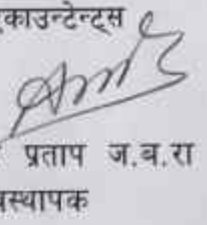 काउन्टेन्ट्स
प्रताप ज.ब.रा
स्थापक